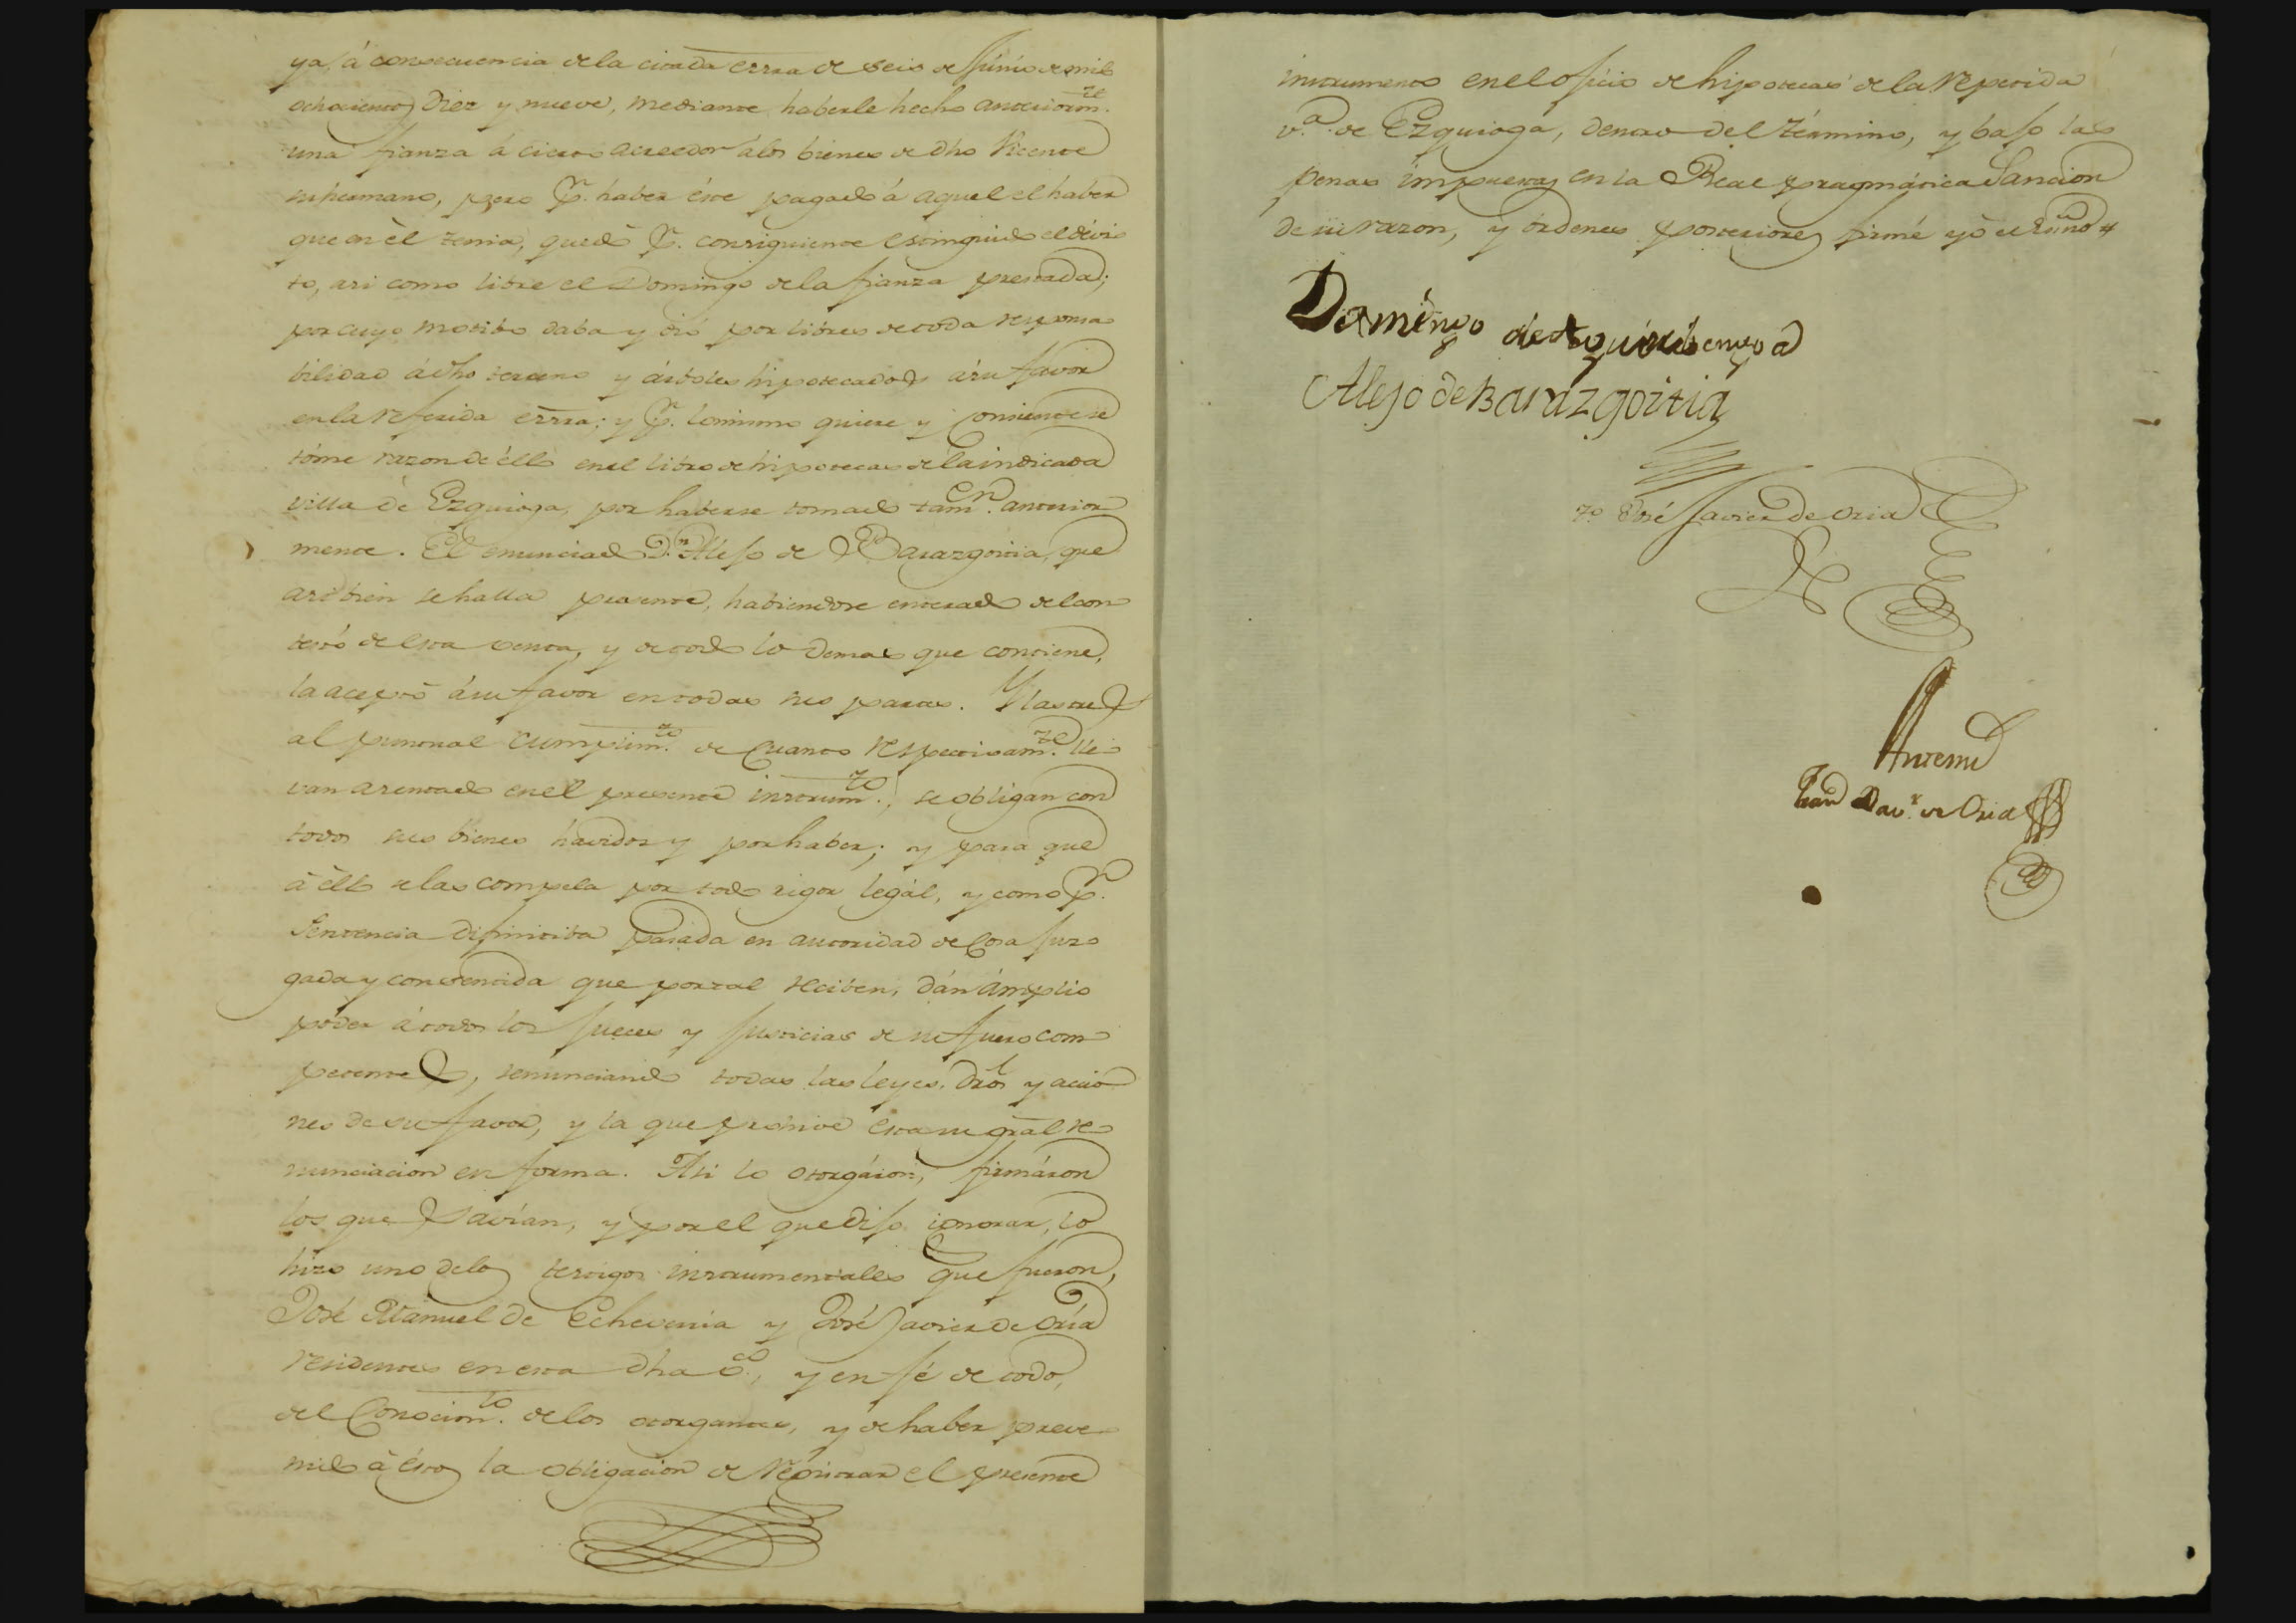 ya, á consecuencia de la citada essra de seis de Junio de mil
ochocientos Diez y nueve, mediante haberle hecho anteriorm.te
una fianza á cierto acreedor á los bienes de dho Vicente
su hermano, pero p.r haber éste pagado á aquel el haber
que en él tenia, quedó p.r consiguiente estinguido el débi
to, asi como libre el Domingo de la fianza prestada;
por cuyo motibo daba y dió por libres de toda responsa
bilidad á dho terreno y árboles hipotecados á su favor
en la referida essra; y p.r lo mismo quiere y consiente se
tóme razon de éllo en el libro de hipotecas de la indicada
villa de Ezquioga, por haberse tomado tam.en anterior
mente. El enunciado D.n Alejo de Barazgoitia, que
asi bien se halla presente, habiendose enterado del con
testo de esta venta, y de todo lo demas que contiene,
la aceptó á su favor en todas sus partes. Y las tres
al puntual cumplim.to de cuanto respectivam.te lle
van asentado en el presente instrum.to, se obligan con
todos sus bienes havidos y por haber; y para que
á éllo se las compela por todo rigor legál, y como p.r
Sentencia difinitiba pasada en autoridad de Cosa Juz
gada y consentida que por tal reciben, dán ámplio
poder á todos los Jueces y Justicias de su fuero com
petente, renunciando todas las leyes, dros y accio
nes de su favor, y la que prohive esta su gral re
nunciacion en forma. Asi lo otorgáron, firmáron
los que savían, y por el que dijo ignorar, lo
hizo uno de los testigos instrumentales que fueron,
José Manuel de Echeverria y José Javier de Oria
residentes en esta dha v.a, y en fé de todo,
del Conocim.to de los otorgantes, y de haber preve
nido á éstos la obligacion de registrar el presente
instrumento en el oficio de hipotecas de la repetida
v.a de Ezquioga, dentro del término, y bajo las
penas impuestas en la Real pragmática Sancion
de su razon, y órdenes posteriores firmé yo el Essno
Domingo de
Alejo de Barazgoitia
t.o José Javier de Oria
Antemi
Juan Bau.ta de Oria